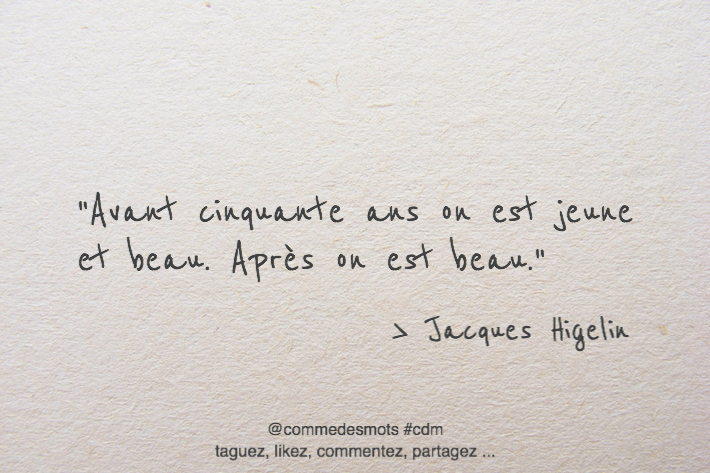 "Avant cinquante ans on est jeune
et beau. Après on est beau."
> Jacques Higelin
@commedesmots #cdm
taguez, likez, commentez, partagez ...